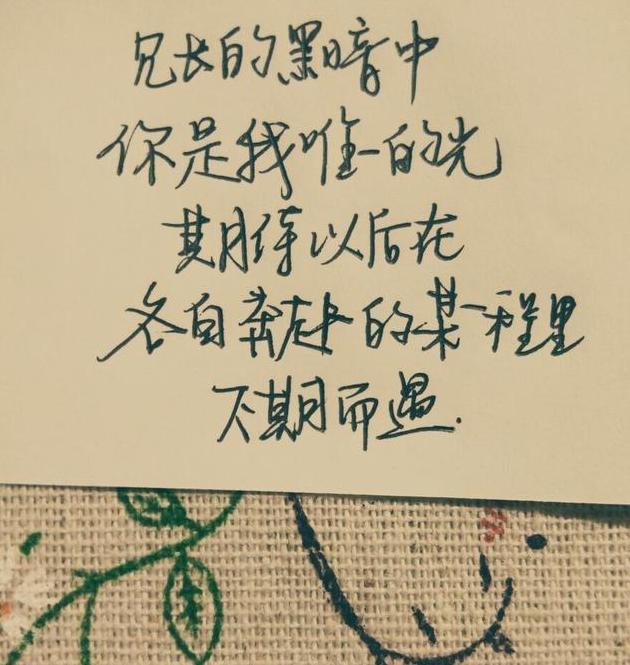 兄长的黑暗中
你是我唯一的光
期待以后在
各自奔赴的某一程里
不期而遇.